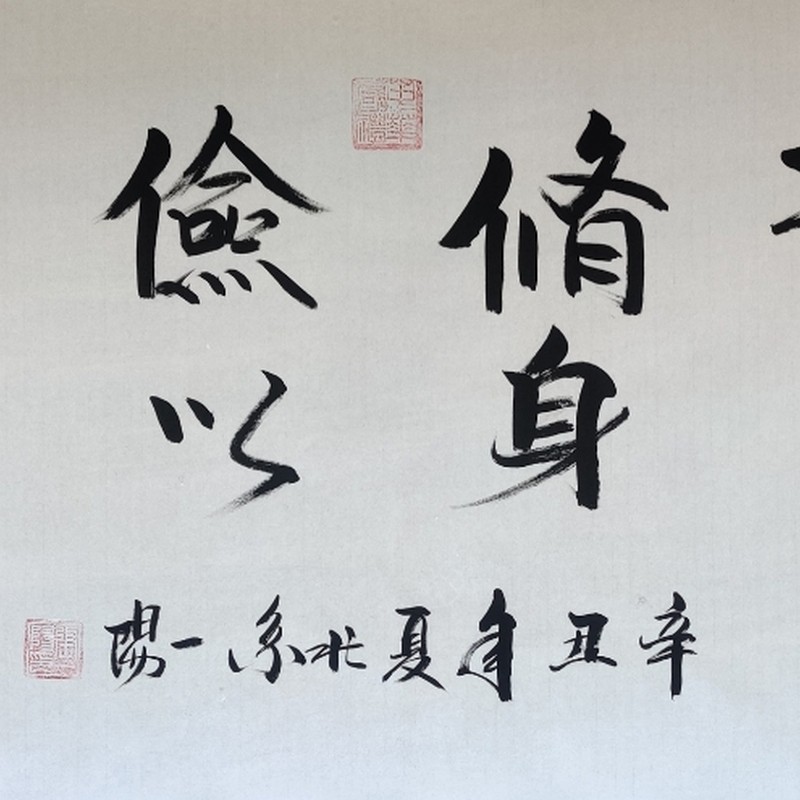 脩身
儉以
辛丑年夏北一陽